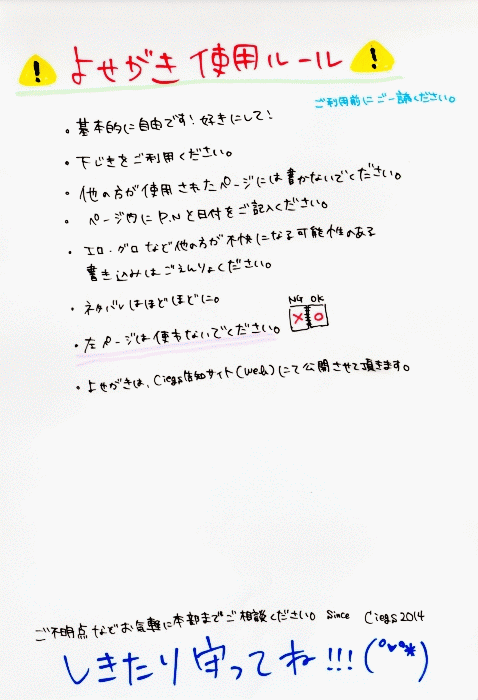 よせがき 使用ルール
ご利用前にご一読ください。
・基本的に自由です!好きにして!
・下じきをご利用ください。
・他の方が使用されたページには書かないでください。
・ページ内にP.Nと日付をご記入ください。
・エロ・グロなど他の方が不快になる可能性のある
書き込みはごえんりょください。
・ネタバレはほどほどに。
NG OK
×○
・左ページは使わないでください。
・よせがきは、Ciegs告知サイト(web)にて公開させて頂きます。
ご不明点などお気軽に本部までご相談ください。 since Ciegs2014
しきたり守ってね!!!(°▽°*)